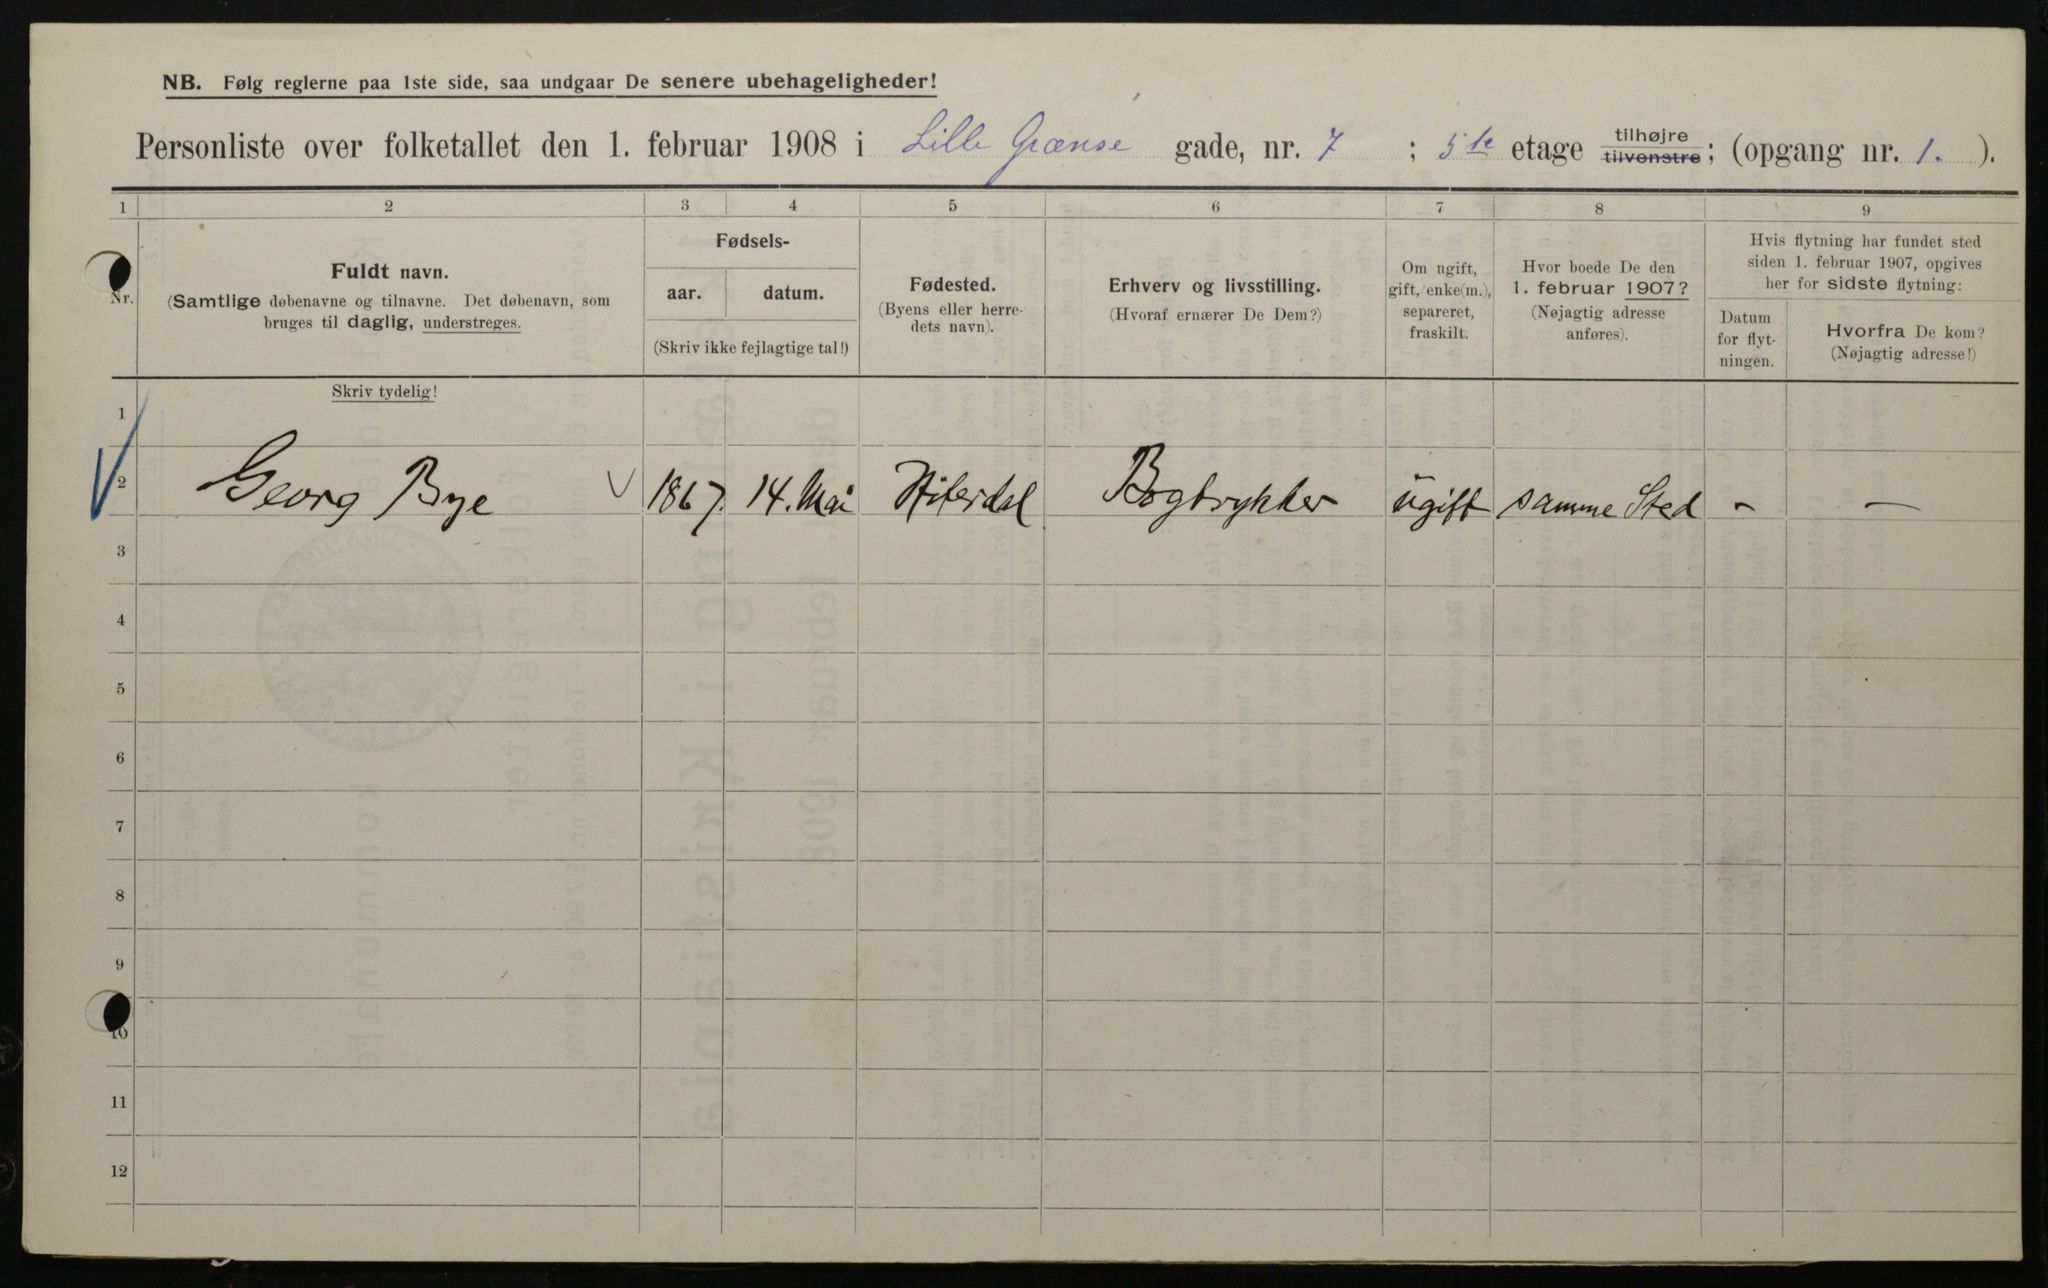 NB. Følg reglerne paa 1ste side, saa undgaar De senere ubehageligheder!
Personliste over folketallet den 1. februar 1908 i Lille Grænse gade, nr. 7 ; 5te etage tilhøjre tilvenstre; (opgang nr. 1. ).
1 2 3 4 5 6 7 8 9
Nr.
Fuldt navn.
(Samtlige døbenavne og tilnavne. Det døbenavn, som
bruges til daglig, understreges.
Fødsels-
aar. datum.
(Skriv ikke fejlagtige tal!)
Fødested.
(Byens eller herre-
dets navn).
Erhverv og livsstilling.
(Hvoraf ernærer De Dem?)
Om ugift,
gift, enke(m.),
separeret,
fraskilt.
Hvor boede De den
1. februar 1907?
(Nøjagtig adresse
anføres).
Hvis flytning har fundet sted
siden 1. februar 1907, opgives
her for sidste flytning:
Datum
for flyt-
ningen.
Hvorfra De kom?
(Nøjagtig adresse!)
Skriv tydelig!
1
2 Georg Bye 1867. 14. Mai Hiterdal Bogtrykker ugift samme Sted - -
3
4
5
6
7
8
9
10
11
12